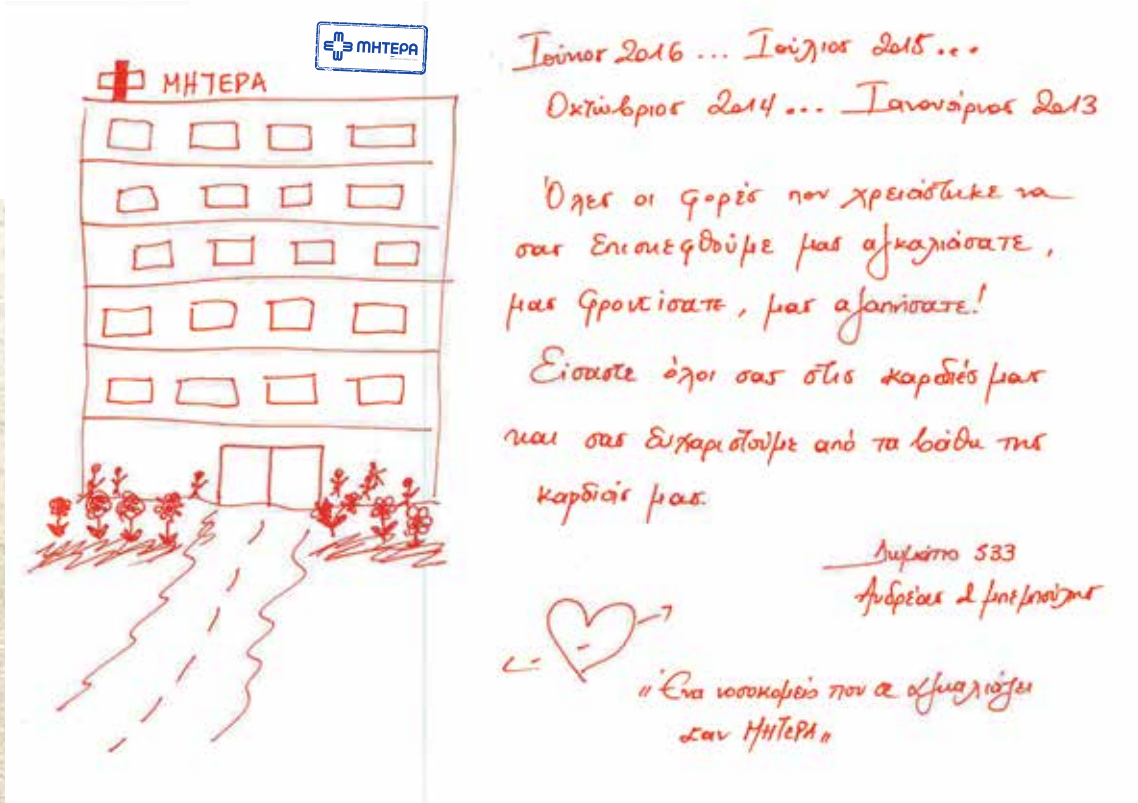 ΜΗΤΕΡΑ
ΜΗΤΕΡΑ
Ιούνιος 2016 ... Ιούλιος 2015...
Οκτώβριος 2014... Ιανουάριος 2013
Όλες οι φορές που χρειάστηκε να
σας επισκεφθούμε μας αγκαλιάσατε,
μας φροντίσατε, μας αγαπήσατε!
Είσαστε όλοι σας στις καρδιές μας
και σας ευχαριστούμε από τα βάθη της
καρδιάς μας.
Δωμάτιο 533
Ανδρέας & μπεμπούλης
"Ένα νοσοκομείο που σε αγκαλιάζει
σαν ΜΗΤΕΡΑ"